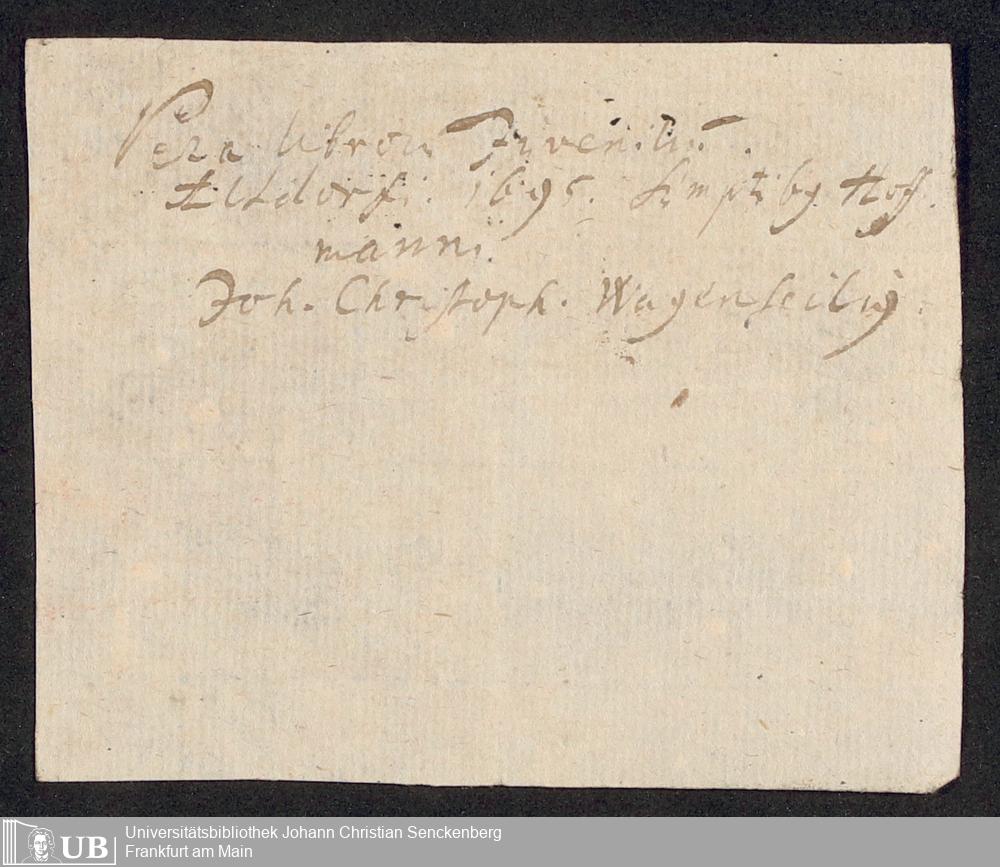 Pera librorū Juveniliū.
Altdorfi. 1695. Sumptibꝰ Hoff.
manni.
Joh. Christoph. Wagenseiliꝰ.
UB
Universitätsbibliothek Johann Christian Senckenberg
Frankfurt am Main